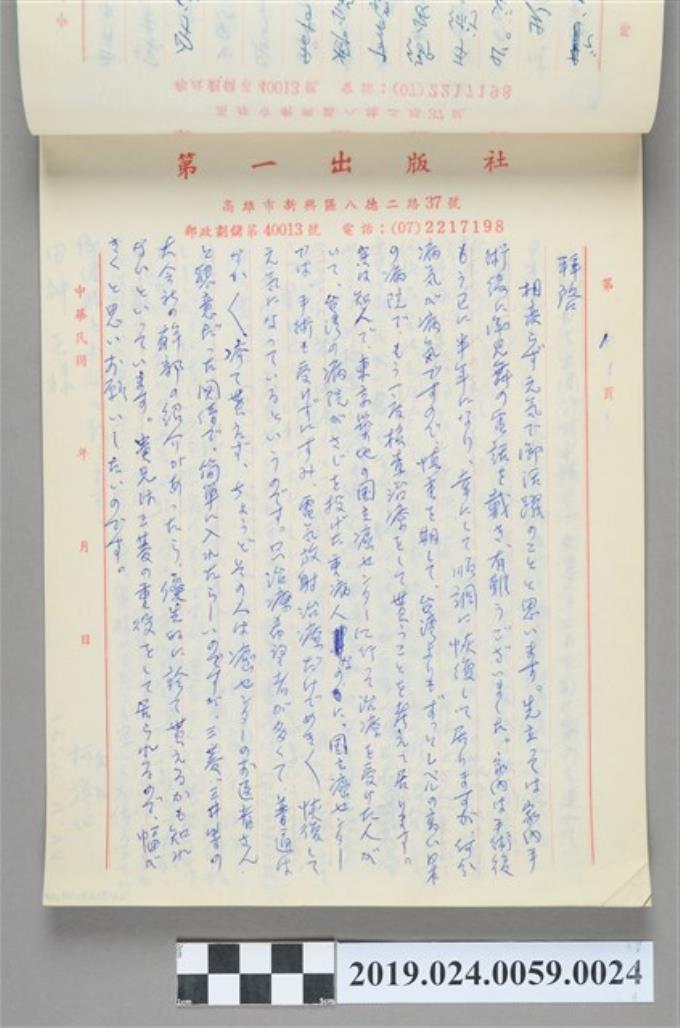 郵政劃儲第40013號 電話：(07)2217198
高雄市新興區八德二路37號
第一出版社
高雄市新興區八德二路37號
郵政劃儲第40013號 電話：(07)2217198
第 1 頁
拝啓
相変らず元気で御活躍のことと思います。先立っては家内手
術後に御見舞の電話を戴き、有難うございました。家内は手術後
もう已に半年になり、幸にして順調に恢復して居りますが、何分
病気が病気ですので、慎重を期して、台湾よりもずっとレベルの高い日本
の病院で、もう一度検査治療をして貰うことを考えて居ります。
実は知人で、東京築地の国立癌センターに行って治療を受けた人が
いて、台湾の病院がさじを投げた重病人なのに、国立癌センター
では、手術も受けずにすみ、電気放射治療だけでめきめき恢復して
元気になっているというのです。只治療希望者が多くて、普通は
なかなか診て貰えず、ちょうどその人は癌センターのお医者さん
と懇意だった関係で、簡単に入れたらしいのですが、三菱、三井等の
大会社の幹部の紹介があったら、優先的に診て貰えるかも知れ
ないといっています。貴兄は三菱の重役をして居られるので、幅が
きくと思いお願いしたいのです。
中華民國 年 月 日
2019.024.0059.0024